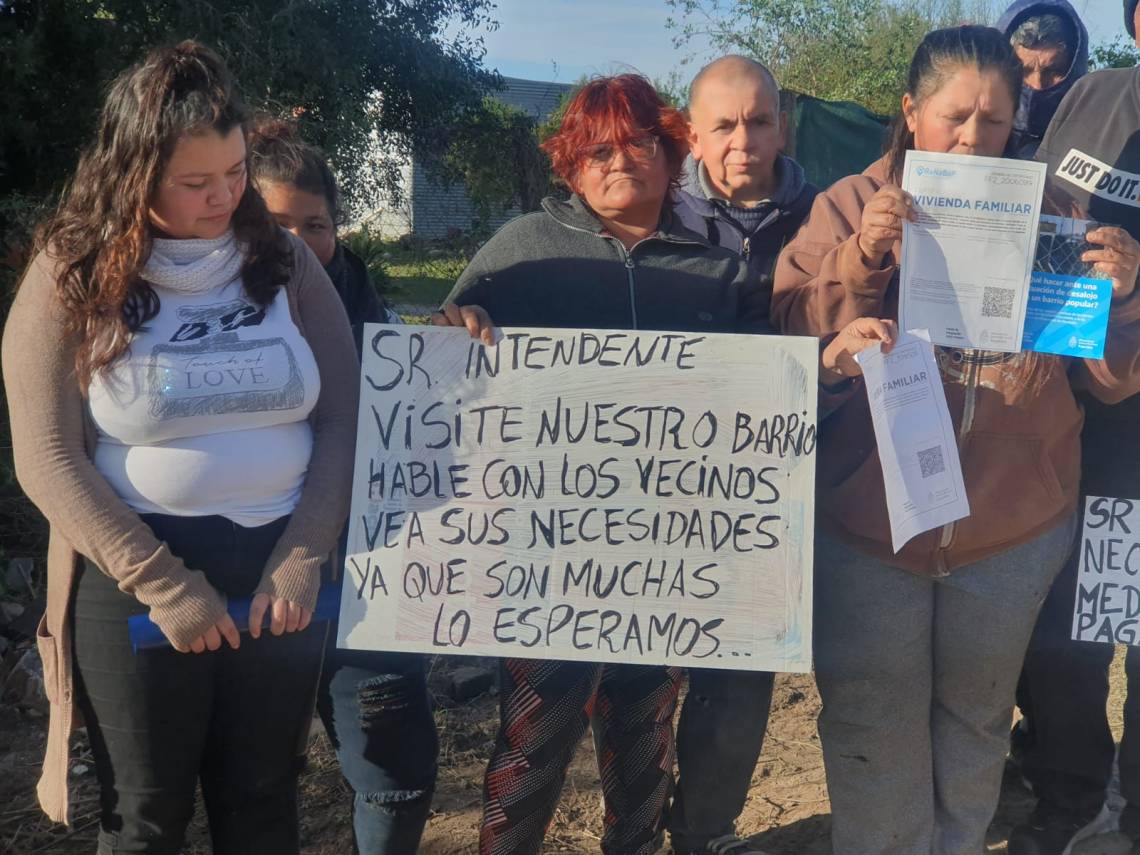 SR. INTENDENTE
VISITE NUESTRO BARRIO
HABLE CON LOS VECINOS
VEA SUS NECESIDADES
YA QUE SON MUCHAS
LO ESPERAMOS...
Touch of
LOVE
ReNaBaP
VIVIENDA FAMILIAR
FAMILIAR
hacer ante una
de desalojo
un barrio popular?
JUST DO IT.
SR
NEC
MED
PAG